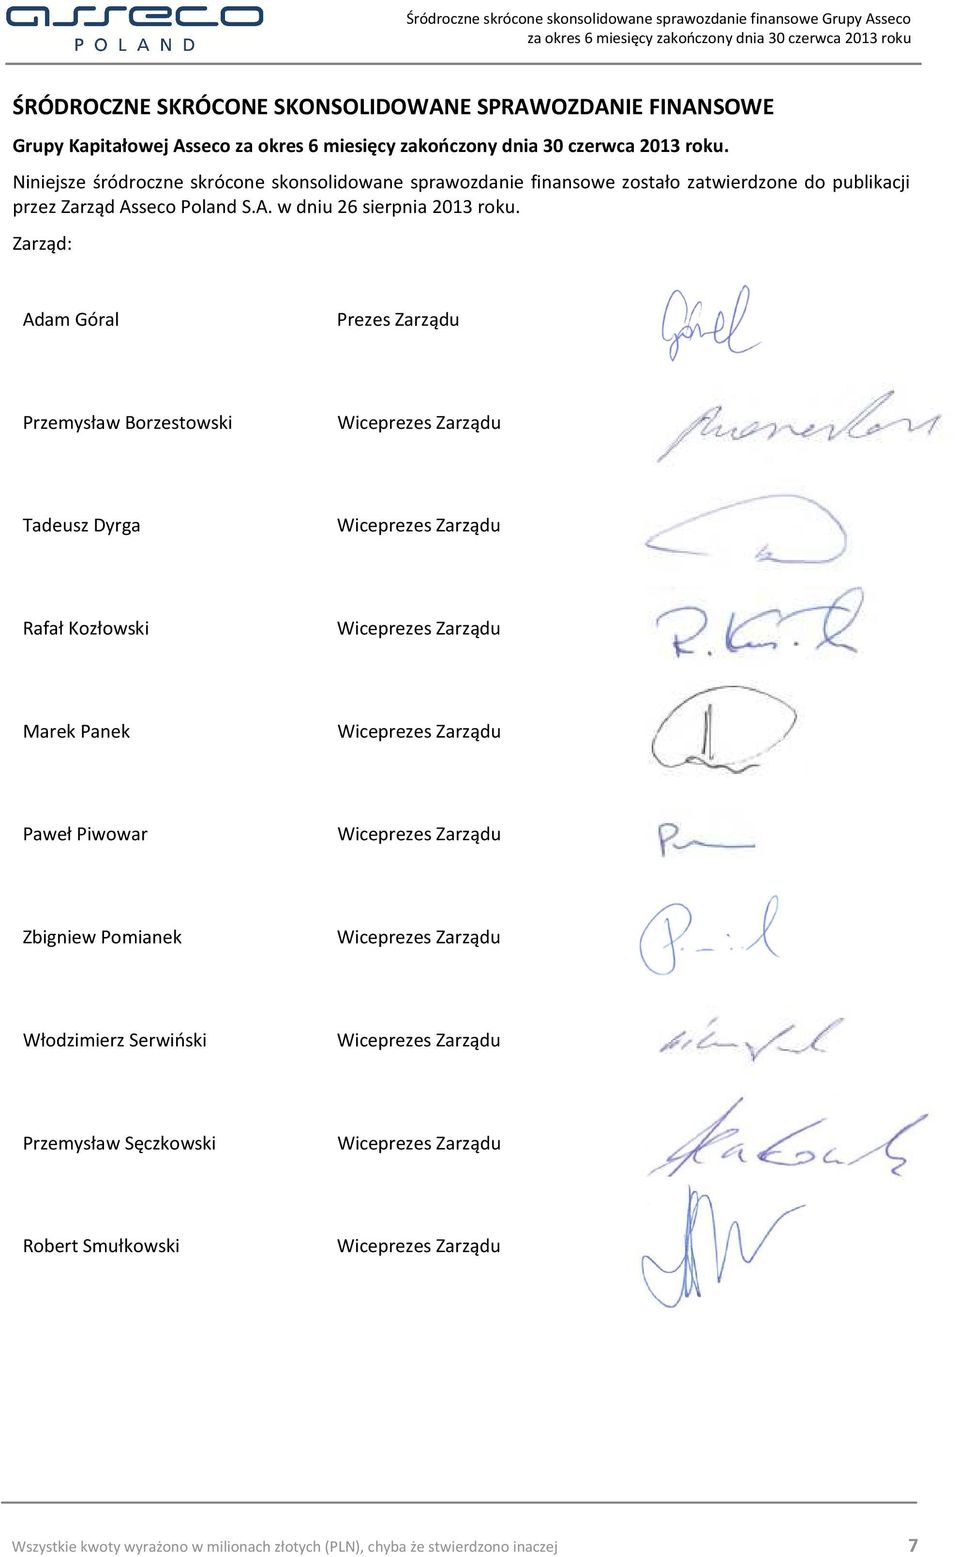 asseco
POLAND
Śródroczne skrócone skonsolidowane sprawozdanie finansowe Grupy Asseco
za okres 6 miesięcy zakończony dnia 30 czerwca 2013 roku
ŚRÓDROCZNE SKRÓCONE SKONSOLIDOWANE SPRAWOZDANIE FINANSOWE
Grupy Kapitałowej Asseco za okres 6 miesięcy zakończony dnia 30 czerwca 2013 roku.
Niniejsze śródroczne skrócone skonsolidowane sprawozdanie finansowe zostało zatwierdzone do publikacji
przez Zarząd Asseco Poland S.A. w dniu 26 sierpnia 2013 roku.
Zarząd:
Adam Góral Prezes Zarządu
Przemysław Borzestowski Wiceprezes Zarządu
Tadeusz Dyrga Wiceprezes Zarządu
Rafał Kozłowski Wiceprezes Zarządu
Marek Panek Wiceprezes Zarządu
Paweł Piwowar Wiceprezes Zarządu
Zbigniew Pomianek Wiceprezes Zarządu
Włodzimierz Serwiński Wiceprezes Zarządu
Przemysław Sęczkowski Wiceprezes Zarządu
Robert Smułkowski Wiceprezes Zarządu
Wszystkie kwoty wyrażono w milionach złotych (PLN), chyba że stwierdzono inaczej 7